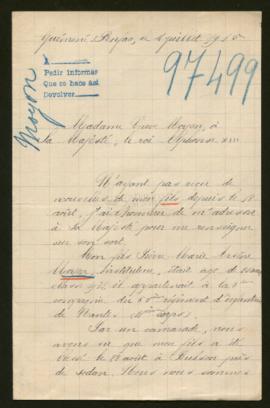 Guémené Penfao, le juillet 1915
97499
Pedir informes
Que se hace así
Devolver
Moyon
Madame Moyon, à
Sa Majesté, le roi Alphonse XIII
N'ayant pas reçu de
nouvelles de mon fils depuis le 18
août, j'ai l'honneur de m'adresser
à Sa Majesté pour me renseigner
sur son sort.
Mon fils Pierre Marie
Moyon, instituteur, était âgé de
classe il appartenait à la
compagnie du régiment d'infanterie
de Nantes corps
Par un camarade, nous
avons su que mon fils a été
blessé le août à près
de Sedan. Nous nous sommes